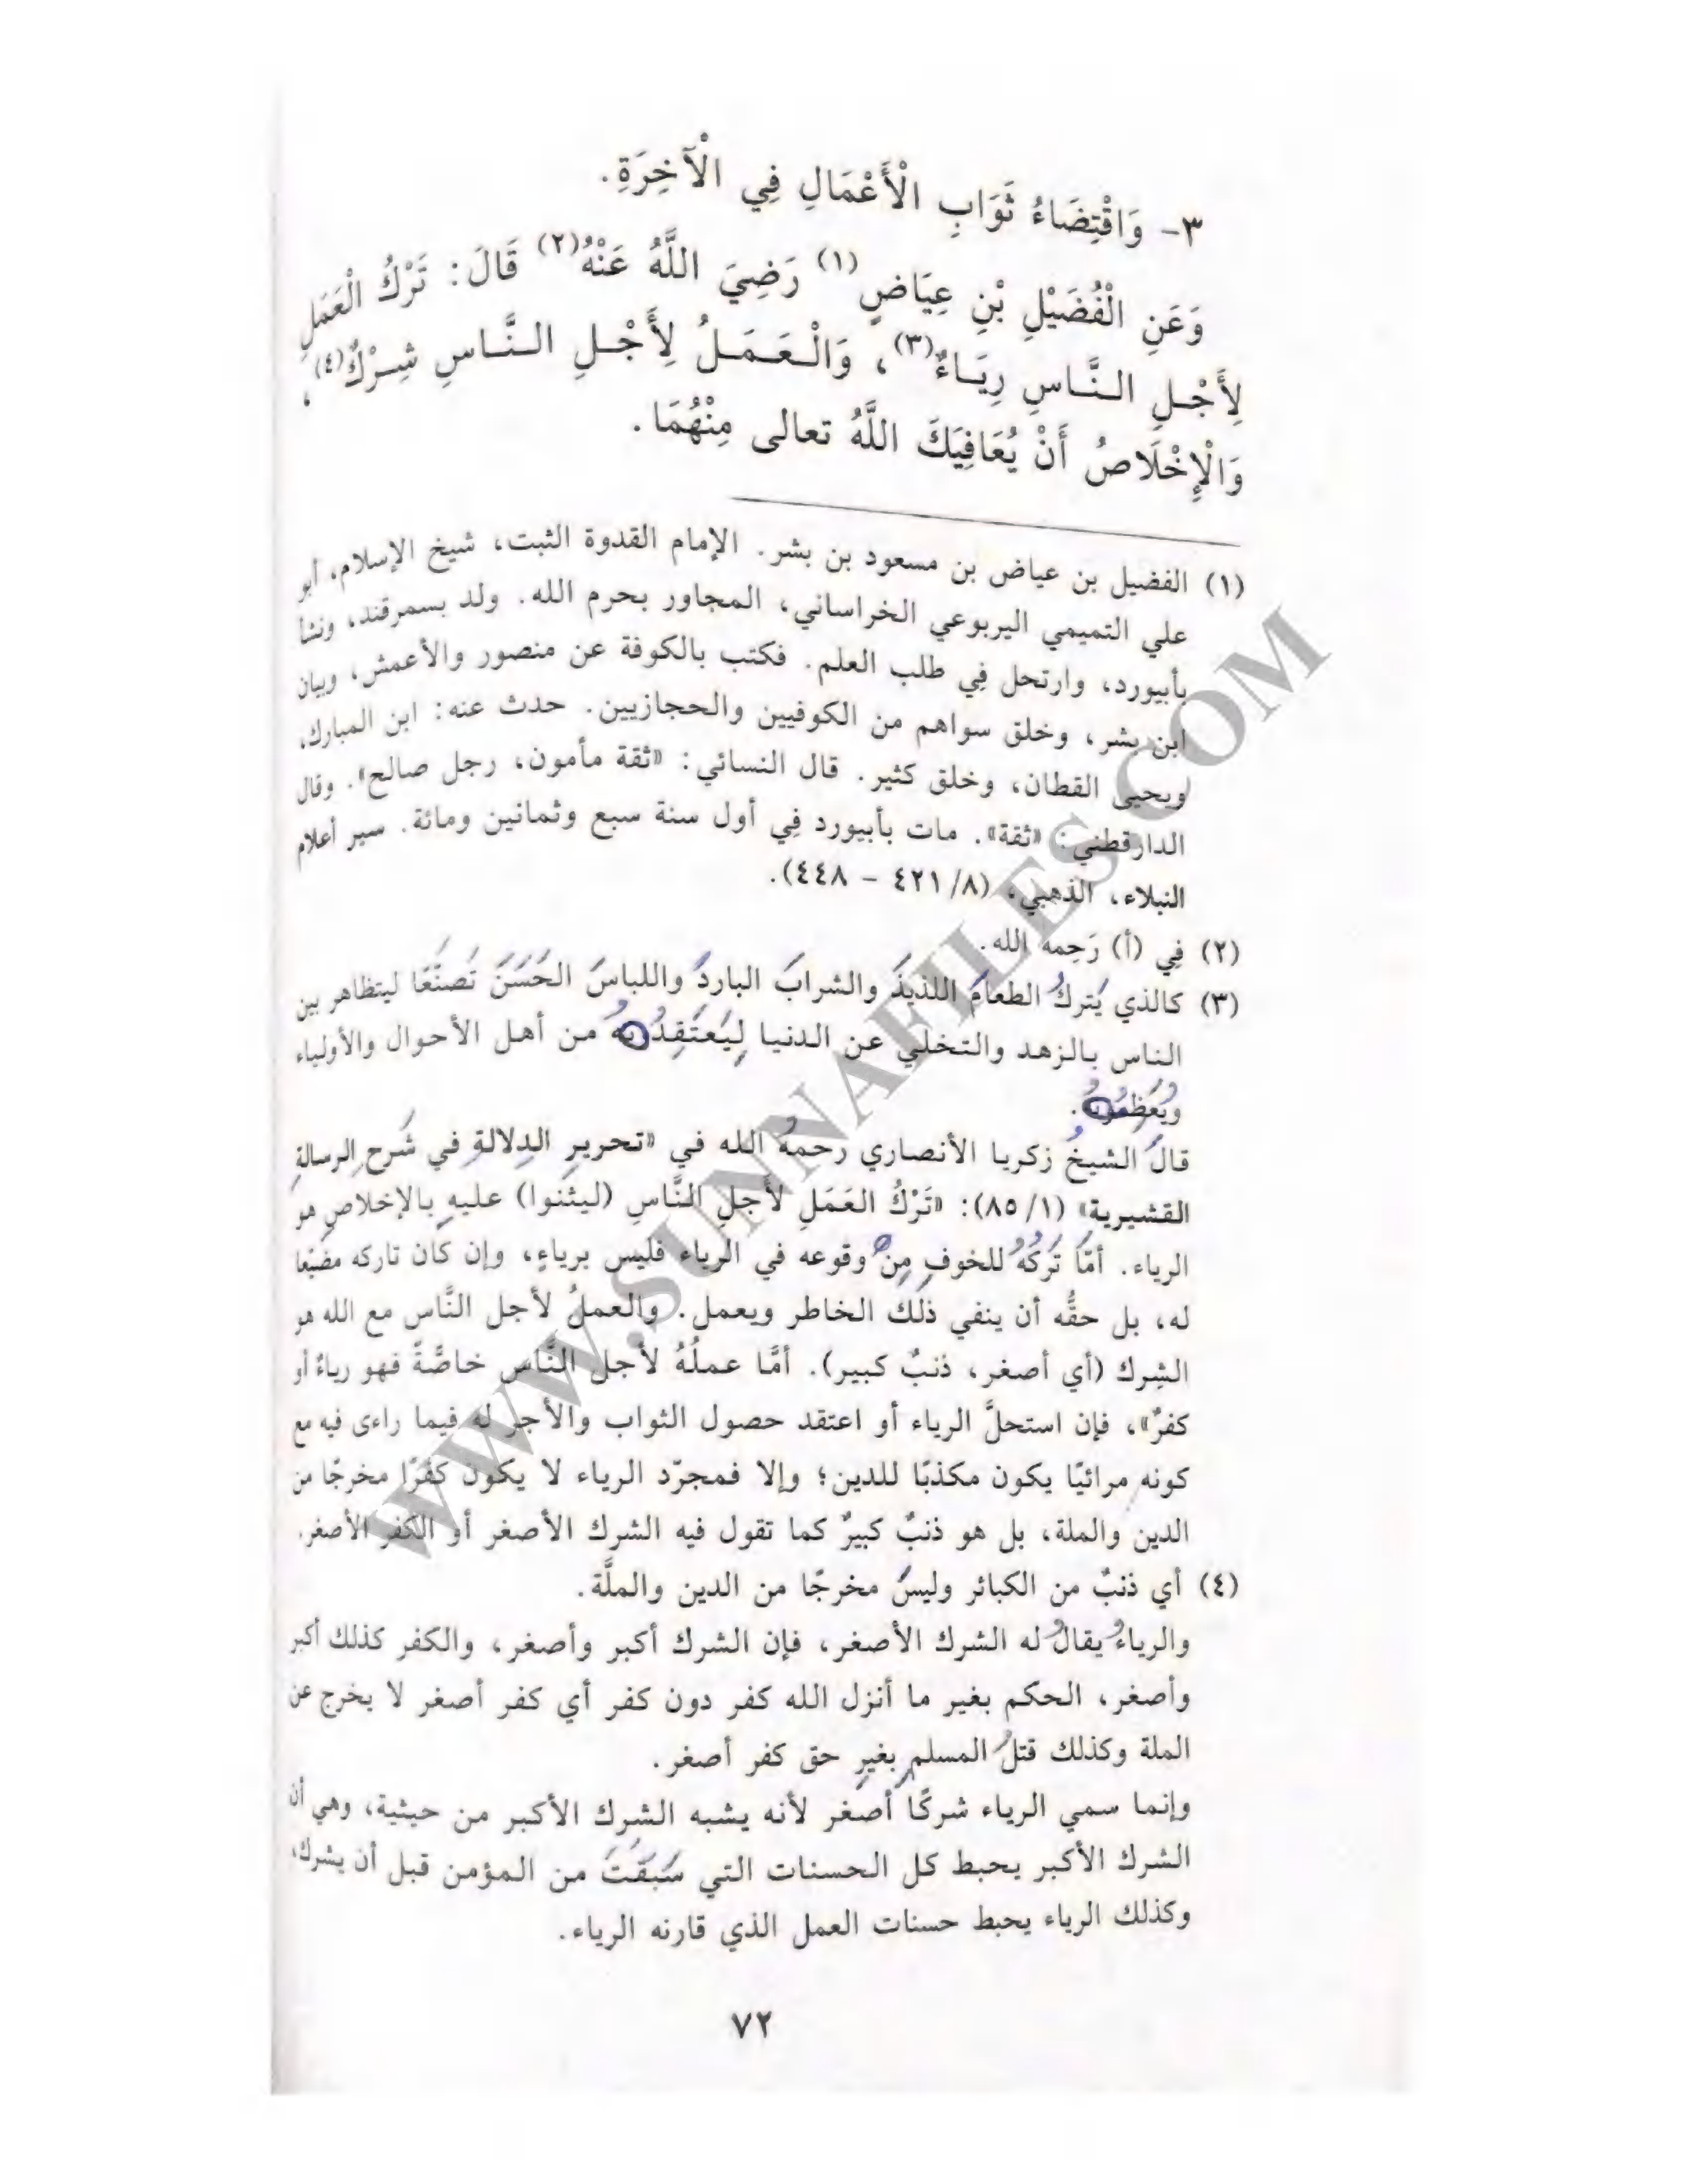 ٣- وَاقْتِضَاءُ ثَوَابِ الْأَعْمَالِ فِي الْآخِرَةِ.
وَعَنِ الْفُضَيْلِ بْنِ عِيَاضٍ(١) رَضِيَ اللَّهُ عَنْهُ(٢) قَالَ: تَرْكُ الْعَمَلِ
لِأَجْلِ النَّاسِ رِيَاءٌ(٣)، وَالْعَمَلُ لِأَجْلِ النَّاسِ شِرْكٌ(٤)،
وَالْإِخْلَاصُ أَنْ يُعَافِيَكَ اللَّهُ تعالى مِنْهُمَا.
(١) الفضيل بن عياض بن مسعود بن بشر. الإمام القدوة الثبت، شيخ الإسلام، أبو
علي التميمي اليربوعي الخراساني، المجاور بحرم الله. ولد بسمرقند، ونشأ
بأبيورد، وارتحل فِي طلب العلم. فكتب بالكوفة عن منصور والأعمش، وبيان
ابن بشر، وخلق سواهم من الكوفيين والحجازيين. حدث عنه: ابن المبارك،
ويحيى القطان، وخلق كثير. قال النسائي: «ثقة مأمون، رجل صالح». وقال
الدارقطني: «ثقة». مات بأبيورد فِي أول سنة سبع وثمانين ومائة. سير أعلام
النبلاء، الذهبي، (٨/ ٤٢١ - ٤٤٨).
(٢) فِي (أ) رَحِمه الله.
(٣) كالذي يَتركُ الطعامَ اللذيذَ والشرابَ الباردَ واللباسَ الحَسَنَ تَصنّعًا ليتظاهر بين
الناس بالزهد والتخلي عن الدنيا لِيَعتَقِدُوهُ من أهل الأحوال والأولياء
ويُعَظِّمُوهُ.
قالَ الشيخُ زكريا الأنصاري رحمهُ الله في «تحريرِ الدِلالةِ في شَرحِ الرسالةِ
القشيرية» (١/ ٨٥): «تَرْكُ العَمَلِ لأَجلِ النَّاسِ (ليثنوا) عليهِ بالإخلاصِ هو
الرياء. أمّا تَركُهُ للخوفِ مِنْ وقوعه في الرياء فليس برياءٍ، وإن كان تاركه مضيّعا
له، بل حقُّه أن ينفي ذلك الخاطر ويعمل. والعملُ لأجل النَّاس مع الله هو
الشِرك (أي أصغر، ذنبٌ كبير). أمَّا عملُهُ لأجل النَّاس خاصَّةً فهو رياءٌ أو
كفرٌ»، فإن استحلَّ الرياء أو اعتقد حصول الثواب والأجر له فيما راءى فيه مع
كونه مرائيًا يكون مكذبًا للدين؛ وإلا فمجرّد الرياء لا يكون كفرًا مخرجًا من
الدين والملة، بل هو ذنبٌ كبيرٌ كما تقول فيه الشرك الأصغر أو الكفر الأصغر.
(٤) أي ذنبٌ من الكبائر وليسَ مخرجًا من الدين والملَّة.
والرياءُ يقالُ له الشرك الأصغر، فإن الشرك أكبر وأصغر، والكفر كذلك أكبر
وأصغر، الحكم بغير ما أنزل الله كفر دون كفر أي كفر أصغر لا يخرج عن
الملة وكذلك قتلُ المسلمِ بغيرِ حق كفر أصغر.
وإنما سمي الرياء شركًا أصغر لأنه يشبه الشرك الأكبر من حيثية، وهي أن
الشرك الأكبر يحبط كل الحسنات التي سَبَقَتْ من المؤمن قبل أن يشرك،
وكذلك الرياء يحبط حسنات العمل الذي قارنه الرياء.
٧٢
WWW.SUNNAFILES.COM